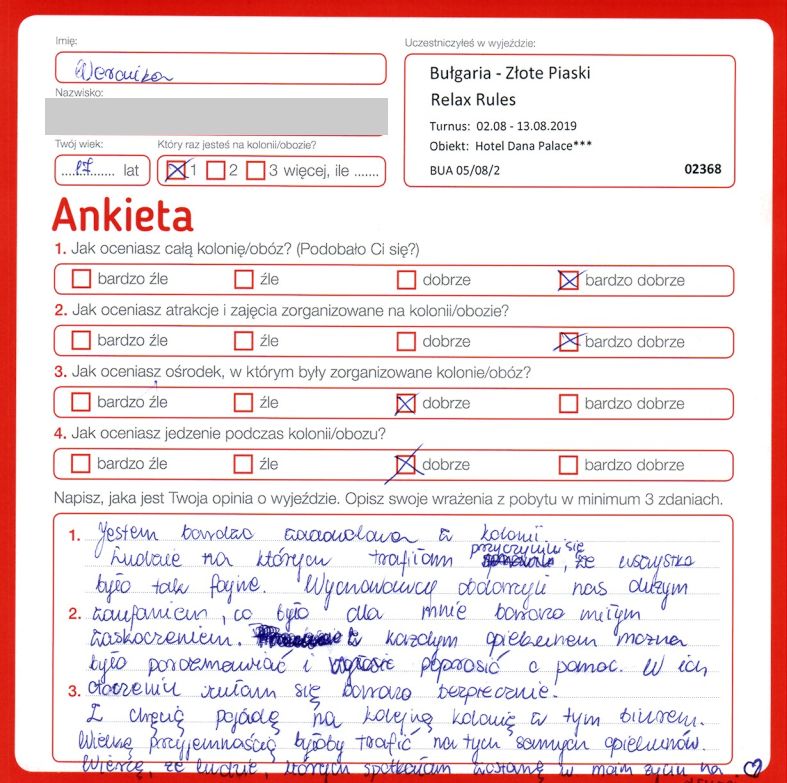 Imię:
Weronika
Nazwisko:
Uczestniczyłeś w wyjeździe:
Bułgaria - Złote Piaski
Relax Rules
Turnus: 02.08 - 13.08.2019
Obiekt: Hotel Dana Palace***
BUA 05/08/2
02368
Twój wiek:
17 lat
Który raz jesteś na kolonii/obozie?
1 2 3 więcej, ile .......
Ankieta
1. Jak oceniasz całą kolonię/obóz? (Podobało Ci się?)
bardzo źle źle dobrze bardzo dobrze
2. Jak oceniasz atrakcje i zajęcia zorganizowane na kolonii/obozie?
bardzo źle źle dobrze bardzo dobrze
3. Jak oceniasz ośrodek, w którym były zorganizowane kolonie/obóz?
bardzo źle źle dobrze bardzo dobrze
4. Jak oceniasz jedzenie podczas kolonii/obozu?
bardzo źle źle dobrze bardzo dobrze
Napisz, jaka jest Twoja opinia o wyjeździe. Opisz swoje wrażenia z pobytu w minimum 3 zdaniach.
1. Jestem bardzo zadowolona z kolonii.
Ludzie na których trafiłam przyczynili się, że wszystko
było tak fajne. Wychowawcy obdarzyli nas dużym
2. zaufaniem, co było dla mnie bardzo miłym
zaskoczeniem. Z każdym opiekunem można
było porozmawiać i poprosić o pomoc. W ich
3. otoczeniu czułam się bardzo bezpiecznie.
Z chęcią pojadę na kolejną kolonię z tym biurem.
Wielką przyjemnością byłoby trafić na tych samych opiekunów.
Wierzę, że ludzie, których spotkałam zostaną w moim życiu na